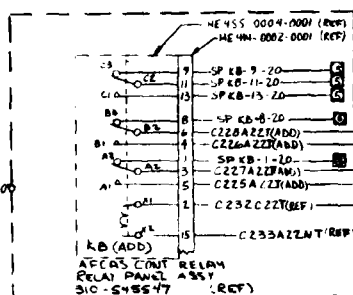 HE4SS 0004-0001 (REF)
HE4N-0002-0001 (REF)
C3 9 SP KB-9-20 G
C2 11 SP KB-11-20 G
C1 13 SP KB-13-20 G
B3 8 SP KB-8-20 G
B2 6 C228A22T(ADD)
B1 4 C226A22T(ADD)
A3 1 SP KB-1-20
A2 3 C227A22T(ADD)
A1 5 C225A22T(ADD)
X1 2 C232C22T(REF)
X2 15 C233A22NT(REF)
KB (ADD)
AFCAS CONT RELAY
RELAY PANEL ASSY
310-545547 (REF)